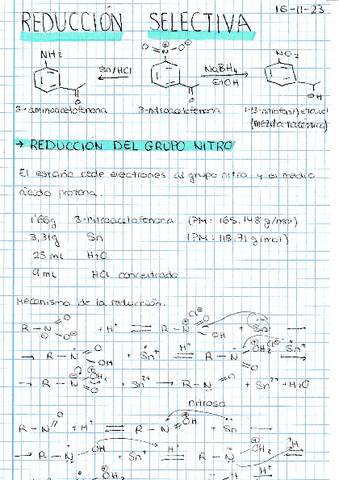 16-11-23
REDUCCIÓN SELECTIVA
NH₂ NO₂
Sn/HCl NaBH₄
EtOH
3-aminoacetofenona 3-nitroacetofenona 1-(3-nitrofenil)etanol
(mezcla racémica)
→ REDUCCIÓN DEL GRUPO NITRO
El estaño cede electrones al grupo nitro y el medio
ácido protona.
1'66g 3-nitroacetofenona (PM: 165.148 g/mol)
3,31g Sn (PM: 118.71 g/mol)
25 mL H₂O
9 mL HCl concentrado
Mecanismo de la reducción.
R-N + H⁺ ⇌ R-N OH + Sn →
→ R-N OH + Sn⁺ ⇌ H⁺ R-N OH₂ Sn⁺ →
→ R-N OH₂ + Sn²⁺ → R-N + Sn²⁺ + H₂O
nitroso
R-N + H⁺ ⇌ R-N OH + Sn →
→ R-N OH + Sn⁺ ⇌ R-N OH H